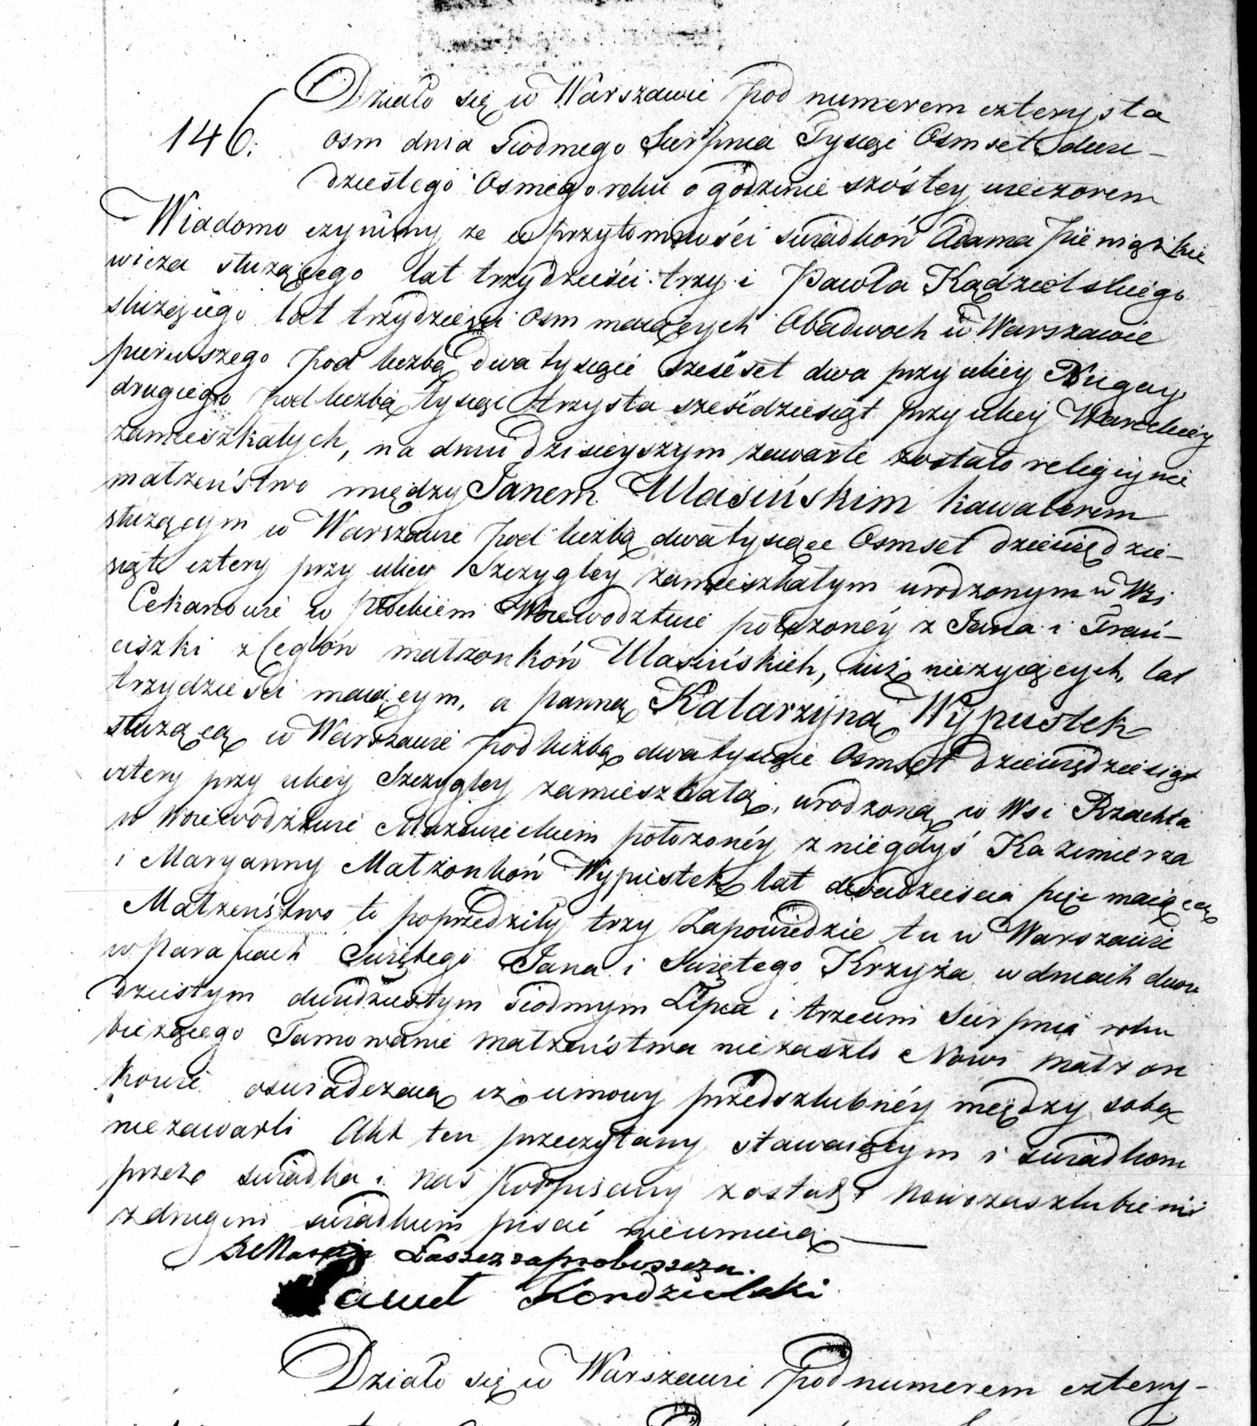 Działo się w Warszawie pod numerem czterysta
146. osm dnia siodmego Sierpnia Tysiąc Osmset dwu-
dziestego Osmego roku o godzinie szóstey wieczorem
Wiadomo czynimy ze w przytomności swiadków Adama Pieniązkie
wicza służącego lat trzydzieści trzy i Pawła Kądzielskiego
służącego lat trzydzieści osm maiących Obadwoch w Warszawie
pierwszego pod liczbą dwa tysiące sześćset dwa przy ulicy Bugay,
drugiego pod liczbą tysiąc trzysta sześćdziesiąt przy ulicy Wareckiey
zamieszkałych, na dniu dzisieyszym zawarte zostało religiyne
małżeństwo między Janem Ulasińskim kawalerem
służącym w Warszawie pod liczbą dwa tysiące Osmset dziewiędzie-
siąt cztery przy ulicy Szczygley zamieszkałym urodzonym w Wsi
Cekanowie w Płockiem Woiewodztwie położonéy z Jana i Fran-
ciszki z małżonków Ulasińskich, iuż nieżyiących, lat
trzydzieści maiącym, a panną Katarzyną Wypustek
służącą w Warszawie pod liczbą dwa tysiące Osmset dziewiędziesiąt
cztery przy ulicy Szczygley zamieszkałą, urodzoną w Wsi Rzachta
w Woiewodztwie Mazowieckiem położonéy z niegdyś Kazimierza
i Maryanny Małżonków Wypustek lat dwadzieścia pięć maiącą
Małżeństwo to poprzedziły trzy Zapowiedzie tu w Warszawie
w parafiach Swiętego Jana i Swiętego Krzyża w dniach dwu
dziestym dwudziestym siodmym Lipca i trzecim Sierpnia roku
bieżącego Tamowanie małżeństwa niezaszło Nowi małżon
kowie oswiadczaią iż umowy przedszlubnéy między sobą
niezawarli Akt ten przeczytany stawaiącym i swiadkom
przez swiadka i nas podpisany został, Nowozaszlubieni
z drugim swiadkiem pisać nieumieią
za proboszcza.
Paweł Kondzielski
Działo się w Warszawie pod numerem cztery-